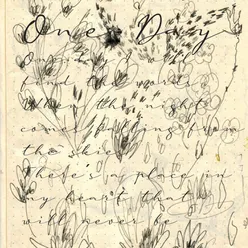 One Day
find the words
When the night
comes falling from
the skies
There's a place in
my heart that
will never be